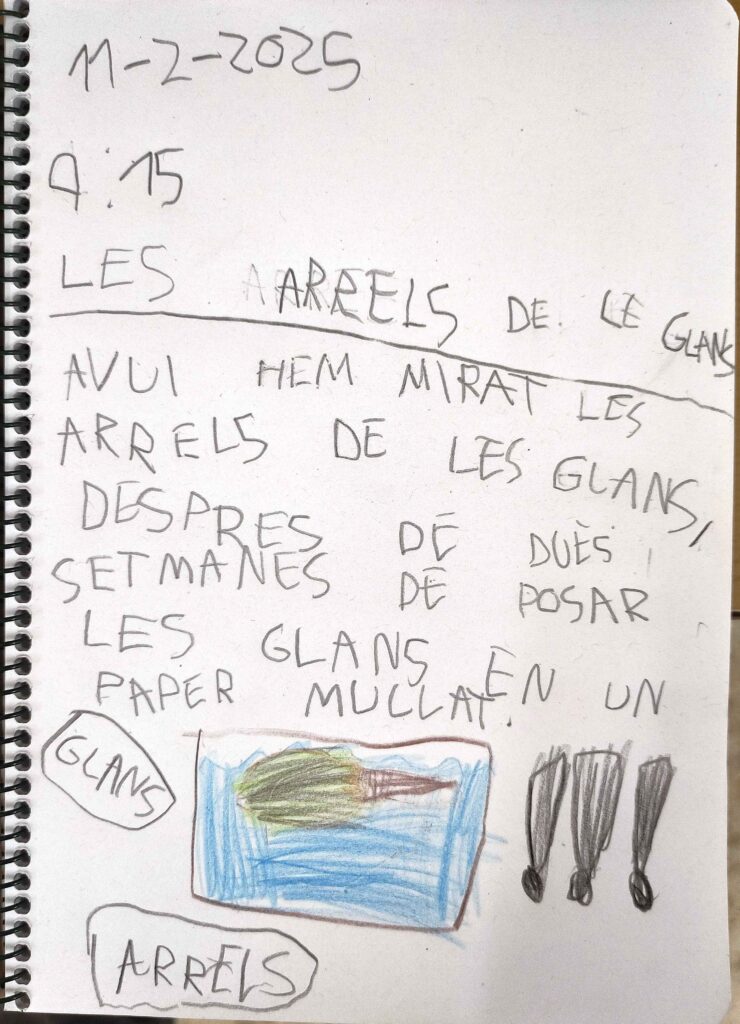 11-2-2025
9:15
LES ARRELS DE LE GLANS
AVUI HEM MIRAT LES
ARRELS DE LES GLANS,
DESPRES DE DUES,
SETMANES DE POSAR
LES GLANS EN UN
PAPER MULLAT.
GLANS
!!!
ARRELS